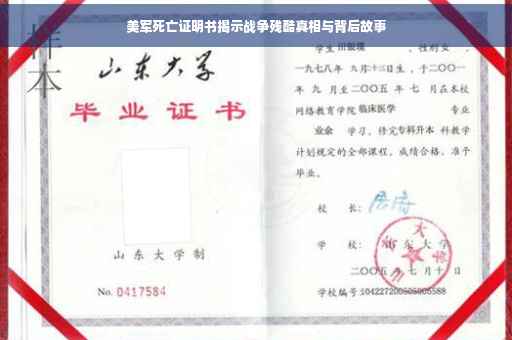 美军死亡证明书揭示战争残酷真相与背后故事
样本
山东大学
毕业证书
山东大学制
No. 0417584
学生 性别 ,
一九七八年 九月十三日生,于二〇〇一
年 九 月至二〇〇五 年 七 月在本校
网络教育学院 临床医学 专业
业余 学习,修完专科升本 科教学
计划规定的全部课程,成绩合格,准予
毕业。
校 长:
学 校: 山东大学
二〇〇五 年 七 月 十 日
学校编号:104227200505005588